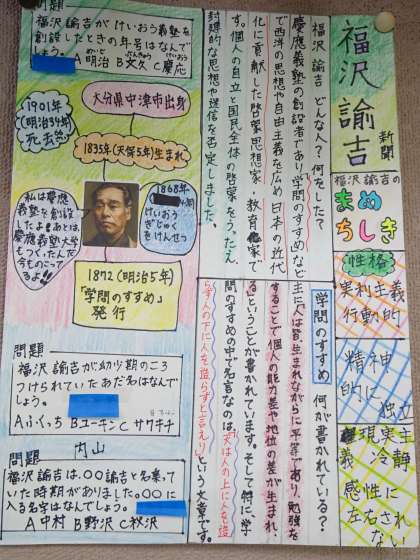 福沢諭吉
新聞
福沢諭吉の
まめ
ちしき
性格
実利主義
行動的
精神
的に独立
現実主
義 冷静
感性に
左右されない
福沢諭吉 どんな人?何をした?
慶應義塾の創設者であり学問のすすめなど
で西洋の思想や自由主義を広め日本の近代
化に貢献した啓蒙思想家 教育家で
す。個人の自立と国民全体の啓蒙をうったえ
封建的な思想や迷信を否定しました。
学問のすすめ 何が書かれている?
主に「人は皆、生まれながらに平等であり、勉強を
することで個人の能力差や地位の差が生まれ
る」ということが書かれています。そして特に、学
問のすすめの中で名言なのは、「天は人の上に人を造
らず人の下に人を造らずと言えり」という文章です。
問題
福沢諭吉がけいおう義塾を
創設したときの年号はなんで
しょう。
A明治 B文久 C慶応
めいじ
けいおう
大分県中津市出身
1901年
(明治34年)
死去
1835年(天保5年)生まれ
1868年
けいおう
ぎじゅく
をけんせつ
私は慶應
義塾を創設
したよ!あとは、
慶應義塾大学
もつくったんだ
今ものこって
るよ!!
1872(明治5年)
「学問のすすめ」
発行
問題
福沢諭吉が幼少期のころ
つけられていたあだ名はなんで
しょう。
Aふくっち Bユーキン C サワキチ
問題
福沢諭吉は、〇〇諭吉と名乗って
いた時期がありました。〇〇に
入る名字はなんでしょう。
A中村 B野沢 C秋沢